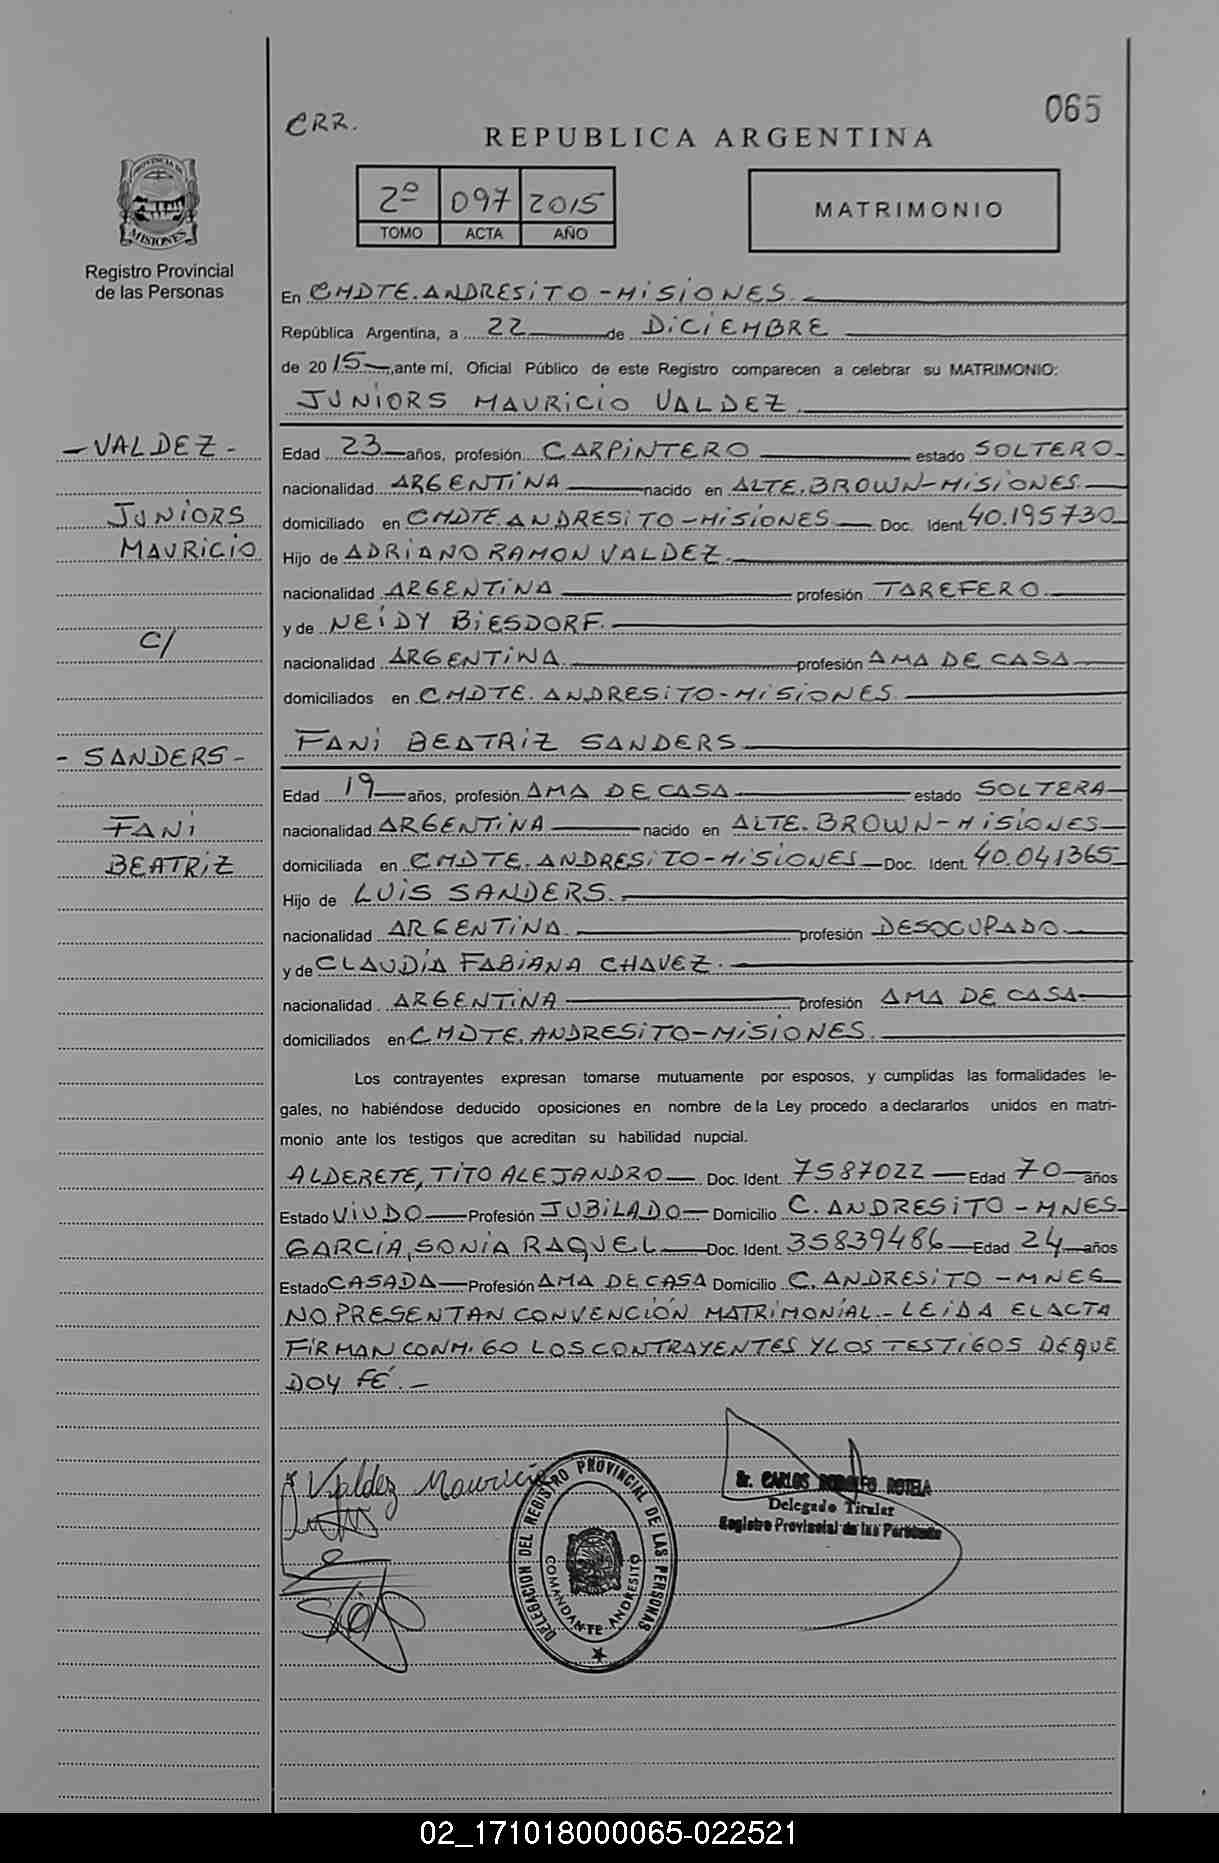 065
CRR.
REPUBLICA ARGENTINA
2º 097 2015
TOMO ACTA AÑO
MATRIMONIO
PROVINCIA DE
MISIONES
Registro Provincial
de las Personas
En CMDTE. ANDRESITO - MISIONES
República Argentina, a 22 de DICIEMBRE
de 2015, ante mí, Oficial Público de este Registro comparecen a celebrar su MATRIMONIO:
JUNIORS MAURICIO VALDEZ
- VALDEZ -
JUNIORS
MAURICIO
C/
- SANDERS -
FANI
BEATRIZ
Edad 23 años, profesión CARPINTERO estado SOLTERO
nacionalidad ARGENTINA nacido en ALTE. BROWN - MISIONES
domiciliado en CMDTE. ANDRESITO - MISIONES Doc. Ident. 40.195730
Hijo de ADRIANO RAMON VALDEZ.
nacionalidad ARGENTINA profesión TAREFERO
y de NEIDY BIESDORF.
nacionalidad ARGENTINA profesión AMA DE CASA
domiciliados en CMDTE. ANDRESITO - MISIONES
FANI BEATRIZ SANDERS
Edad 19 años, profesión AMA DE CASA estado SOLTERA
nacionalidad ARGENTINA nacido en ALTE. BROWN - MISIONES
domiciliada en CMDTE. ANDRESITO - MISIONES Doc. Ident. 40.041365
Hijo de LUIS SANDERS.
nacionalidad ARGENTINA. profesión DESOCUPADO.
y de CLAUDIA FABIANA CHAVEZ.
nacionalidad ARGENTINA profesión AMA DE CASA
domiciliados en CMDTE. ANDRESITO - MISIONES.
Los contrayentes expresan tomarse mutuamente por esposos, y cumplidas las formalidades le-
gales, no habiéndose deducido oposiciones en nombre de la Ley procedo a declararlos unidos en matri-
monio ante los testigos que acreditan su habilidad nupcial.
ALDERETE, TITO ALEJANDRO Doc. Ident. 7587022 Edad 70 años
Estado VIUDO Profesión JUBILADO Domicilio C. ANDRESITO - MNES
GARCIA, SONIA RAQUEL Doc. Ident. 35839486 Edad 24 años
Estado CASADA Profesión AMA DE CASA Domicilio C. ANDRESITO - MNES
NO PRESENTAN CONVENCIÓN MATRIMONIAL - LEIDA EL ACTA
FIRMAN CONMIGO LOS CONTRAYENTES Y LOS TESTIGOS DE QUE
DOY FÉ. -
Valdez Mauricio
DELEGACION DEL REGISTRO PROVINCIAL DE LAS PERSONAS
COMANDANTE ANDRESITO
Sr. CARLOS RODOLFO ROTELA
Delegado Titular
Registro Provincial de las Personas
02_171018000065-022521